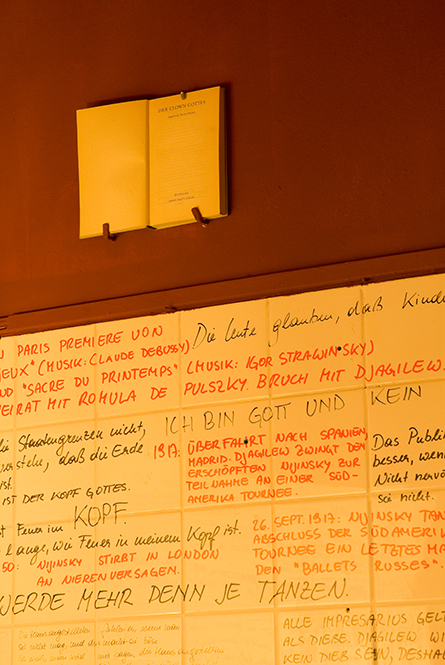 DER CLOWN GOTTES
PARIS PREMIERE VON
Die Leute glauben, daß Kinde
EUX" (MUSIK: CLAUDE DEBUSSY)
ND "SACRE DU PRINTEMPS" (MUSIK: IGOR STRAWINSKY)
EIRAT MIT ROMULA DE PULSZKY. BRUCH MIT DJAGILEW.
ICH BIN GOTT UND KEIN
die Staatengrenzen nicht,
verstehe, daß die Erde
ist.
IST DER KOPF GOTTES.
1917: ÜBERFAHRT NACH SPANIEN,
MADRID. DJAGILEW ZWINGT DEN
ERSCHÖPFTEN NIJINSKY ZUR
TEILNAHME AN EINER SÜD-
AMERIKA TOURNEE.
Das Publi
besser, wenn
Nicht nervö
sei nicht.
st Feuer im KOPF.
lange, wie Feuer in meinem Kopf ist.
50: NIJINSKY STIRBT IN LONDON
AN NIERENVERSAGEN.
26. SEPT. 1917: NIJINSKY TANZ
ABSCHLUSS DER SÜDAMERIKA
TOURNEE EIN LETZTES MA
DEN "BALLETS RUSSES".
WERDE MEHR DENN JE TANZEN.
ALLE IMPRESARIOS GELT
ALS DIEBE. DJAGILEW WI
KEIN DIEB SEIN, DESHA